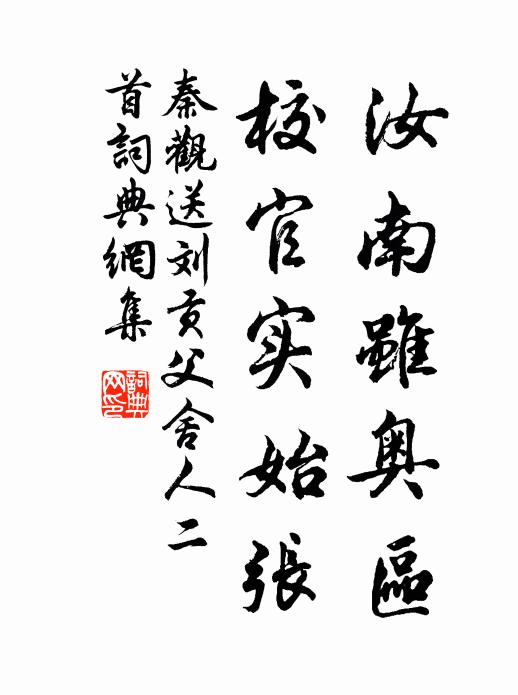 汝南雖奥區
校官实始張
秦觀送刘贡父舍人二
首詞典網集
詞典
网印